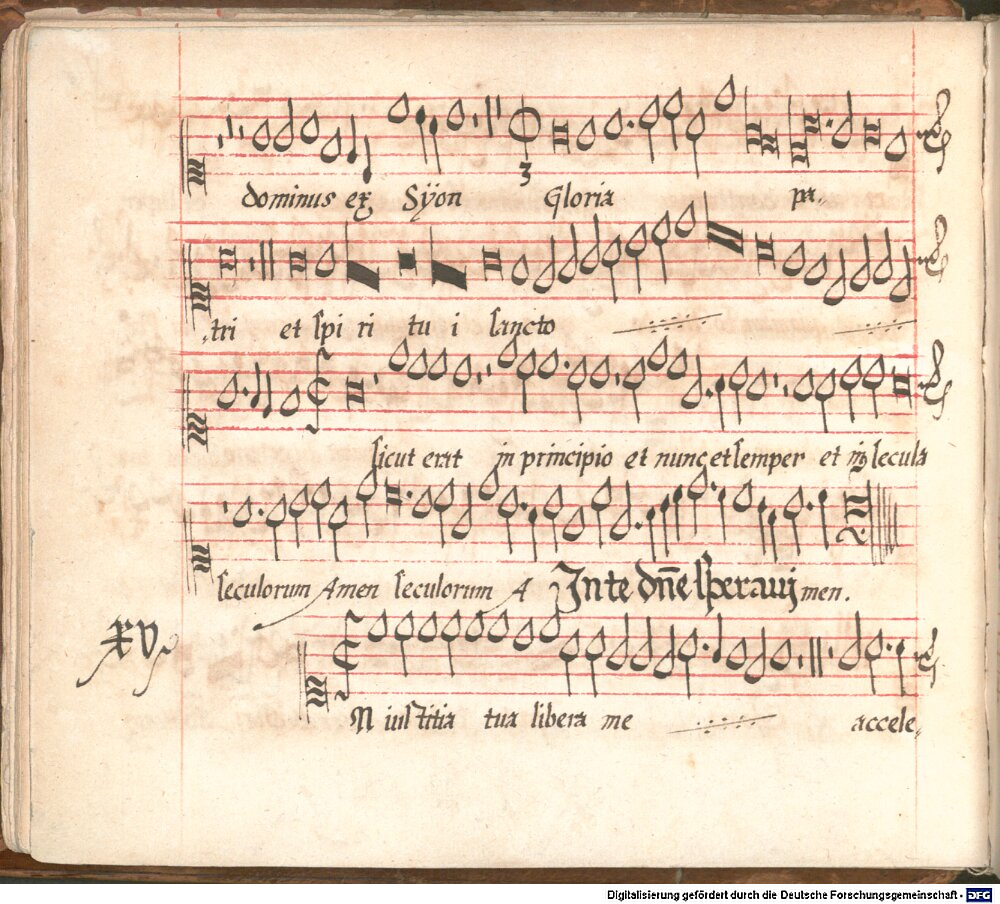 dominus ex Sÿon Gloria pa-
3
-tri et spi ri tu i sancto
sicut erat in principio et nunc et semper et in secula
seculorum Amen seculorum A men.
In te dn̄e speravi
XV
N iustitia tua libera me accele-
Digitalisierung gefördert durch die Deutsche Forschungsgemeinschaft - DFG